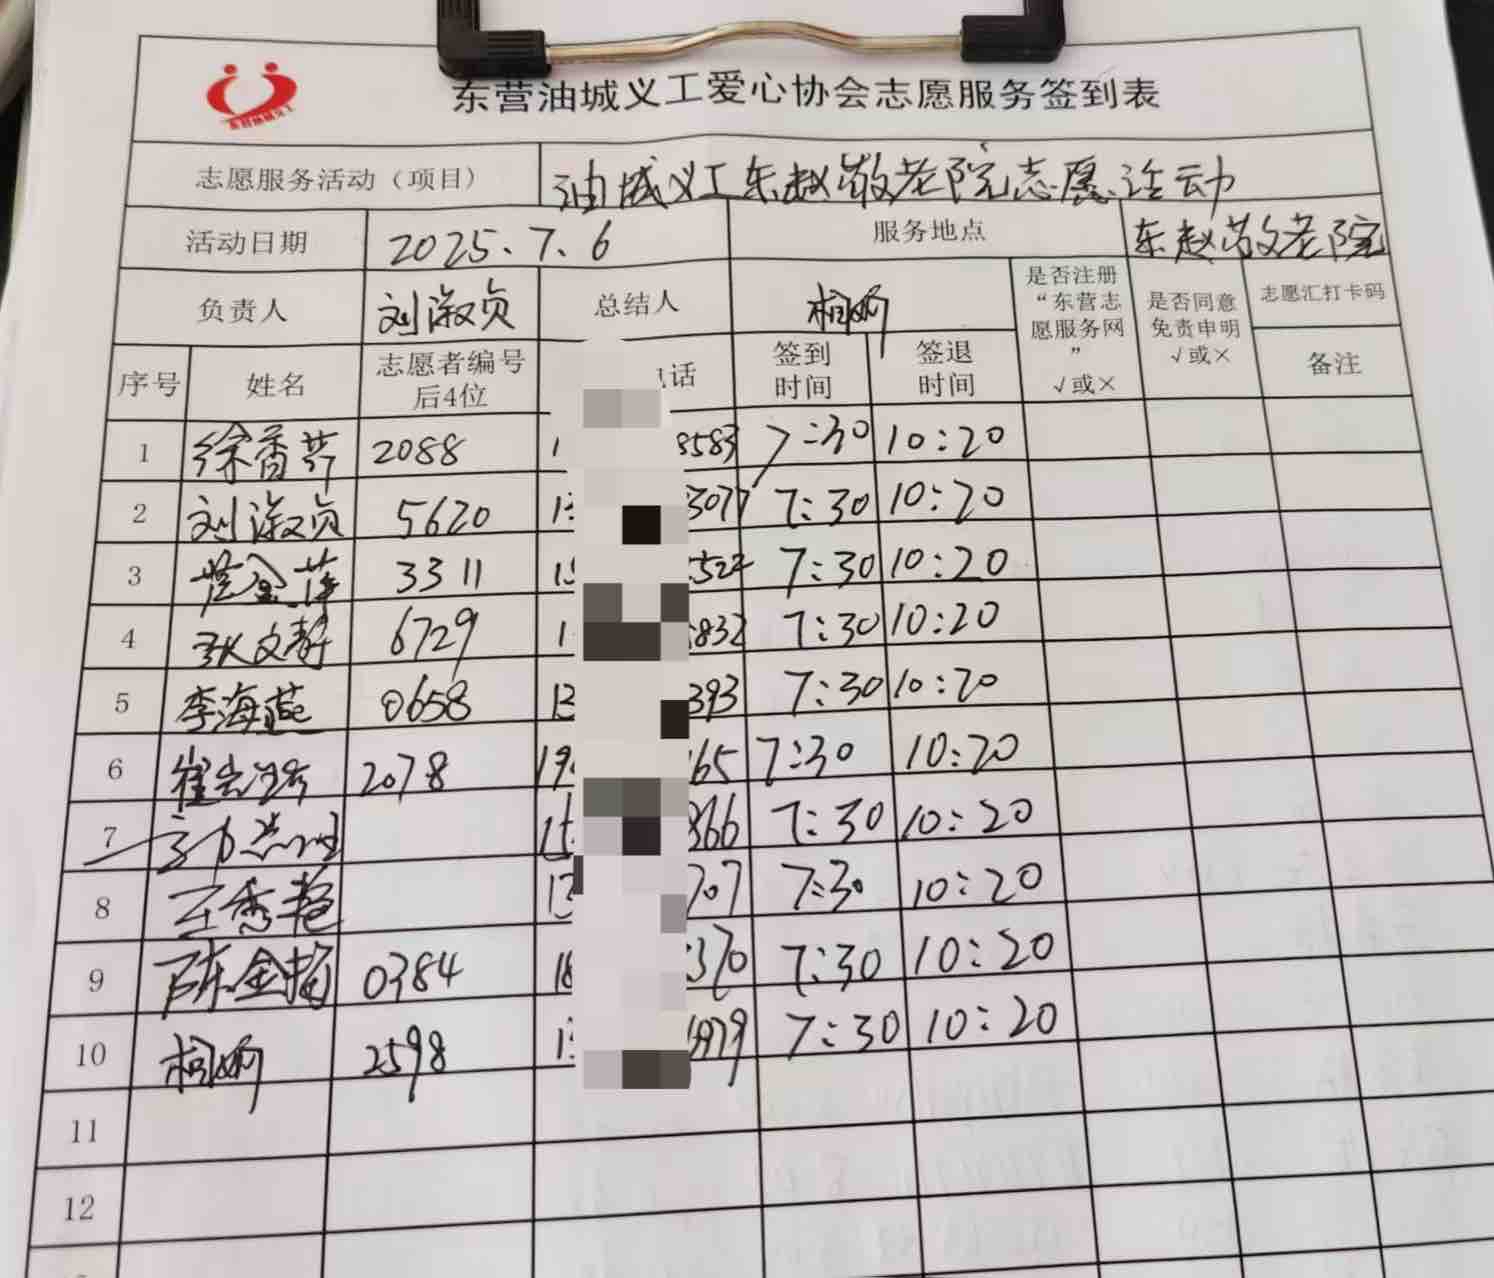 东营油城义工爱心协会志愿服务签到表
志愿服务活动（项目） 油城义工东赵敬老院志愿活动
活动日期 2025.7.6 服务地点 东赵敬老院
负责人 刘淑贞 总结人 是否注册“东营志愿服务网” √或× 是否同意免责申明 √或× 志愿汇打卡码
序号 姓名 志愿者编号后4位 话 签到时间 签退时间 备注
1 徐香芹 2088 1 3583 7:30 10:20
2 刘淑贞 5620 13 3077 7:30 10:20
3 3311 15 522 7:30 10:20
4 张文静 6729 1 832 7:30 10:20
5 李海燕 0658 13 393 7:30 10:20
6 崔 2078 19 165 7:30 10:20
7 15 366 7:30 10:20
8 王秀艳 13 707 7:30 10:20
9 陈金梅 0384 18 370 7:30 10:20
10 2598 1 979 7:30 10:20
11
12